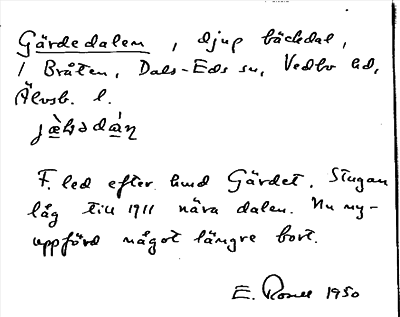 Gärdedalen, djup bäckdal,
/ Bråten, Dals-Eds sn, Vedbo hd,
Älvsb. l.
F. led efter hmd Gärdet. Stugan
låg till 1911 nära dalen. Nu ny-
uppförd något längre bort.
E. Rosell 1950